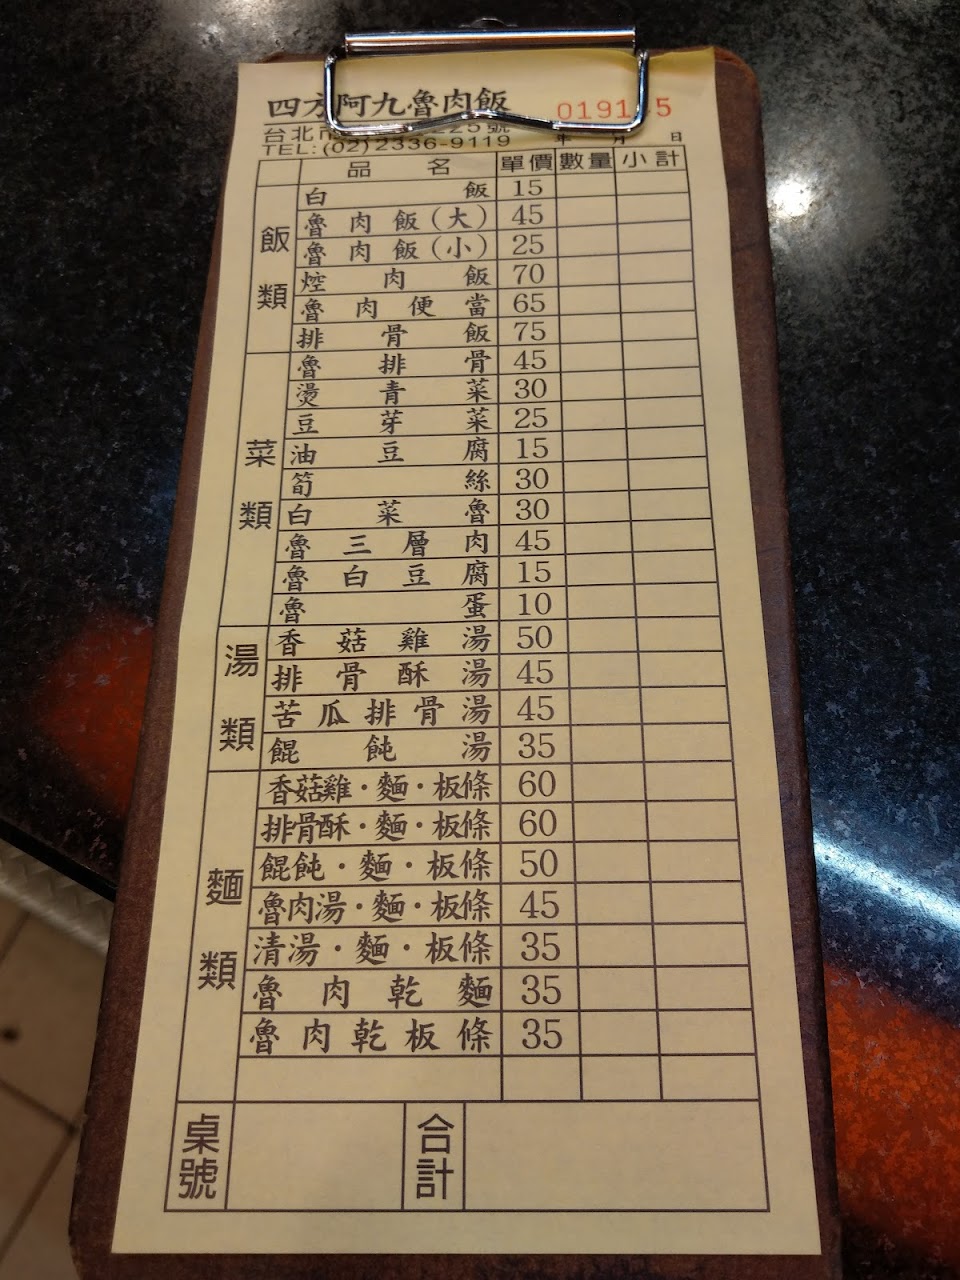 四方阿九魯肉飯
台北市 225號
TEL:(02)2336-9119 年 月 日
品名 單價 數量 小計
飯類
白飯 15
魯肉飯(大) 45
魯肉飯(小) 25
焢肉飯 70
魯肉便當 65
排骨飯 75
菜類
魯排骨 45
燙青菜 30
豆芽菜 25
油豆腐 15
筍絲 30
白菜魯 30
魯三層肉 45
魯白豆腐 15
魯蛋 10
湯類
香菇雞湯 50
排骨酥湯 45
苦瓜排骨湯 45
餛飩湯 35
麵類
香菇雞·麵·板條 60
排骨酥·麵·板條 60
餛飩·麵·板條 50
魯肉湯·麵·板條 45
清湯·麵·板條 35
魯肉乾麵 35
魯肉乾板條 35
桌號 合計